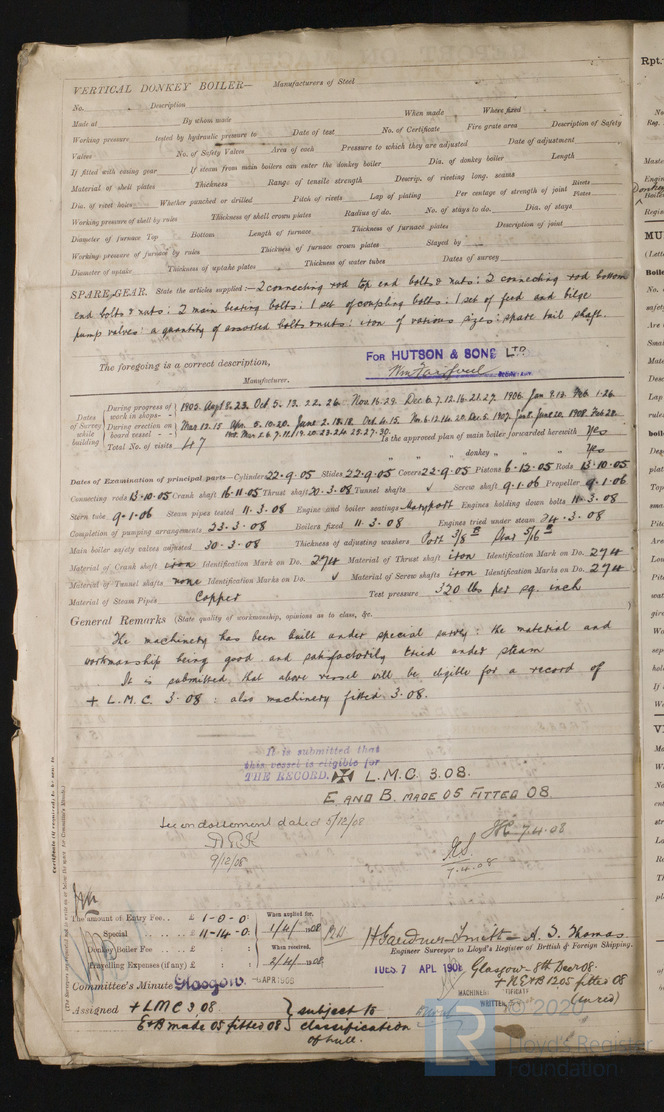 VERTICAL DONKEY BOILER— Manufacturers of Steel
No. Description
Made at By whom made When made Where fixed
Working pressure tested by hydraulic pressure to Date of test No. of Certificate Fire grate area Description of Safety
Valves No. of Safety Valves Area of each Pressure to which they are adjusted Date of adjustment
If fitted with easing gear If steam from main boilers can enter the donkey boiler Dia. of donkey boiler Length
Material of shell plates Thickness Range of tensile strength Descrip. of riveting long. seams
Dia. of rivet holes Whether punched or drilled Pitch of rivets Lap of plating Per centage of strength of joint Rivets Plates
Working pressure of shell by rules Thickness of shell crown plates Radius of do. No. of stays to do. Dia. of stays
Diameter of furnace Top Bottom Length of furnace Thickness of furnace plates Description of joint
Working pressure of furnace by rules Thickness of furnace crown plates Stayed by
Diameter of uptake Thickness of uptake plates Thickness of water tubes Dates of survey
SPARE GEAR. State the articles supplied:— 2 connecting rod top end bolts & nuts: 2 connecting rod bottom
end bolts & nuts: 2 main bearing bolts: 1 set of coupling bolts: 1 set of feed and bilge
pump valves: a quantity of assorted bolts & nuts: iron of various sizes: spare tail shaft.
The foregoing is a correct description,
FOR HUTSON & SONS LTD
SECRETARY.
Manufacturer.
Dates of Survey while building
During progress of work in shops-- 1905. Augt 8. 23. Oct 5. 13. 22. 26. Nov. 16. 29. Dec. 6. 7. 12. 16. 21. 27. 1906. Jan 9. 13. Feb 1. 26.
During erection on board vessel --- Mar. 12. 15 Apr. 5. 10. 20. June 2. 18. 18. Oct. 4. 15. Nov. 6. 12. 14. 20. Dec. 5. 1907. June 20. 1908. Feb 28.
1908. Mar. 2. 6. 7. 11. 17. 19. 20. 23. 24. 25. 27. 30.
Total No. of visits 47 Is the approved plan of main boiler forwarded herewith Yes
" " " donkey " " " Yes
Dates of Examination of principal parts—Cylinders 22.9.05 Slides 22.9.05 Covers 22.9.05 Pistons 6.12.05 Rods 13.10.05
Connecting rods 13.10.05 Crank shaft 16.11.05 Thrust shaft 20.3.08 Tunnel shafts ✓ Screw shaft 9.1.06 Propeller 9.1.06
Stern tube 9.1.06 Steam pipes tested 11.3.08 Engine and boiler seatings Maryport Engines holding down bolts 11.3.08
Completion of pumping arrangements 23.3.08 Boilers fixed 11.3.08 Engines tried under steam 24.3.08
Main boiler safety valves adjusted 30.3.08 Thickness of adjusting washers Port 3/8" Star 5/16"
Material of Crank shaft iron Identification Mark on Do. 274 Material of Thrust shaft iron Identification Mark on Do. 274
Material of Tunnel shafts none Identification Marks on Do. ✓ Material of Screw shafts iron Identification Marks on Do. 274
Material of Steam Pipes Copper Test pressure 320 lbs per sq. inch
General Remarks (State quality of workmanship, opinions as to class, &c.
The machinery has been built under special survey: the material and
workmanship being good and satisfactorily tried under steam
It is submitted that above vessel will be eligible for a record of
+ L.M.C. 3.08: also machinery fitted 3.08.
It is submitted that
this vessel is eligible for
THE RECORD. ✠ L.M.C. 3.08.
E AND B. MADE 05 FITTED 08.
See endorsement dated 5/12/08
9/12/08
7.4.08
7.4.08
Certificate (if required) to be sent to
The amount of Entry Fee.. £ 1-0-0 When applied for,
Special .. £ 11-14-0 1/4/1908
Donkey Boiler Fee .. £ : : When received,
Travelling Expenses (if any) £ : : 2/4/1908
H Gardner-Smith — A. S. Thomas
Engineer Surveyor to Lloyd's Register of British & Foreign Shipping.
Committee's Minute Glasgow - 6 APR 1908
TUES. 7 APL 1908
Glasgow - 8th Dec 08.
+ N.E&B 12.05 fitted 08
(in red)
MACHINERY CERTIFICATE
WRITTEN
Assigned + LMC 3.08 } subject to
E&B made 05 fitted 08 } classification
of hull.
LR © 2020
Lloyd's Register
Foundation
Rpt.